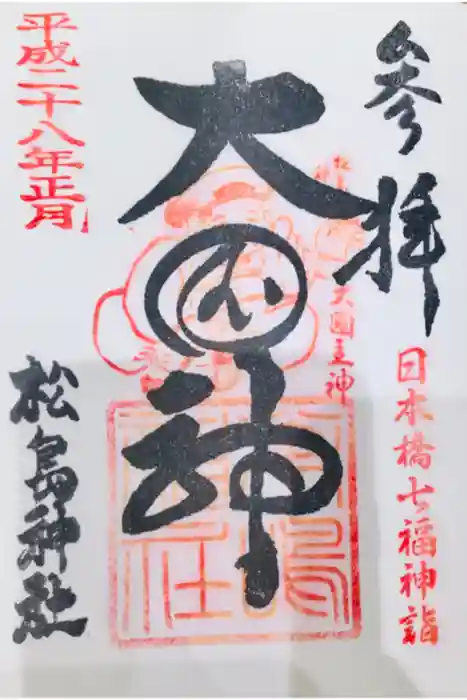 参拝
日本橋七福神詣
大国神
大國主神
平成二十八年正月
松島神社